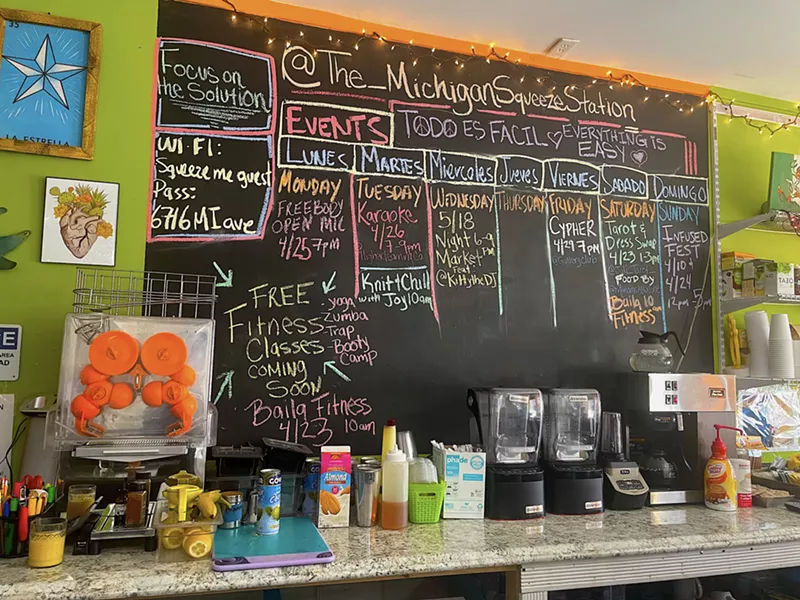 35
LA ESTRELLA
Focus on
the Solution
WI-FI:
Squeeze me guest
Pass:
6716MIave
@The_MichiganSqueezeStation
EVENTS
TODO ES FACIL
EVERYTHING IS
EASY
LUNES
MARTES
MIERCOLES
JUEVES
VIERNES
SABADO
DOMINGO
MONDAY
FREEBODY
OPEN MIC
4/25 7pm
TUESDAY
Karaoke
4/26
7-9pm
Knit+Chill
with Joy 10am
WEDNESDAY
5/18
Night 6-9
Market
Feat
@KittytheDJ
THURSDAY
FRIDAY
CYPHER
4/29 7pm
SATURDAY
Tarot &
Dress Swap
4/23 1-3pm
FOOD BY
Baila 10
Fitness am
SUNDAY
INFUSED
FEST
4/10
4/24
12pm
FREE
Fitness
Classes
COMING
SOON
yoga
Zumba
Trap
Booty
Camp
Baila Fitness
4/23 10am
AREA
Almond